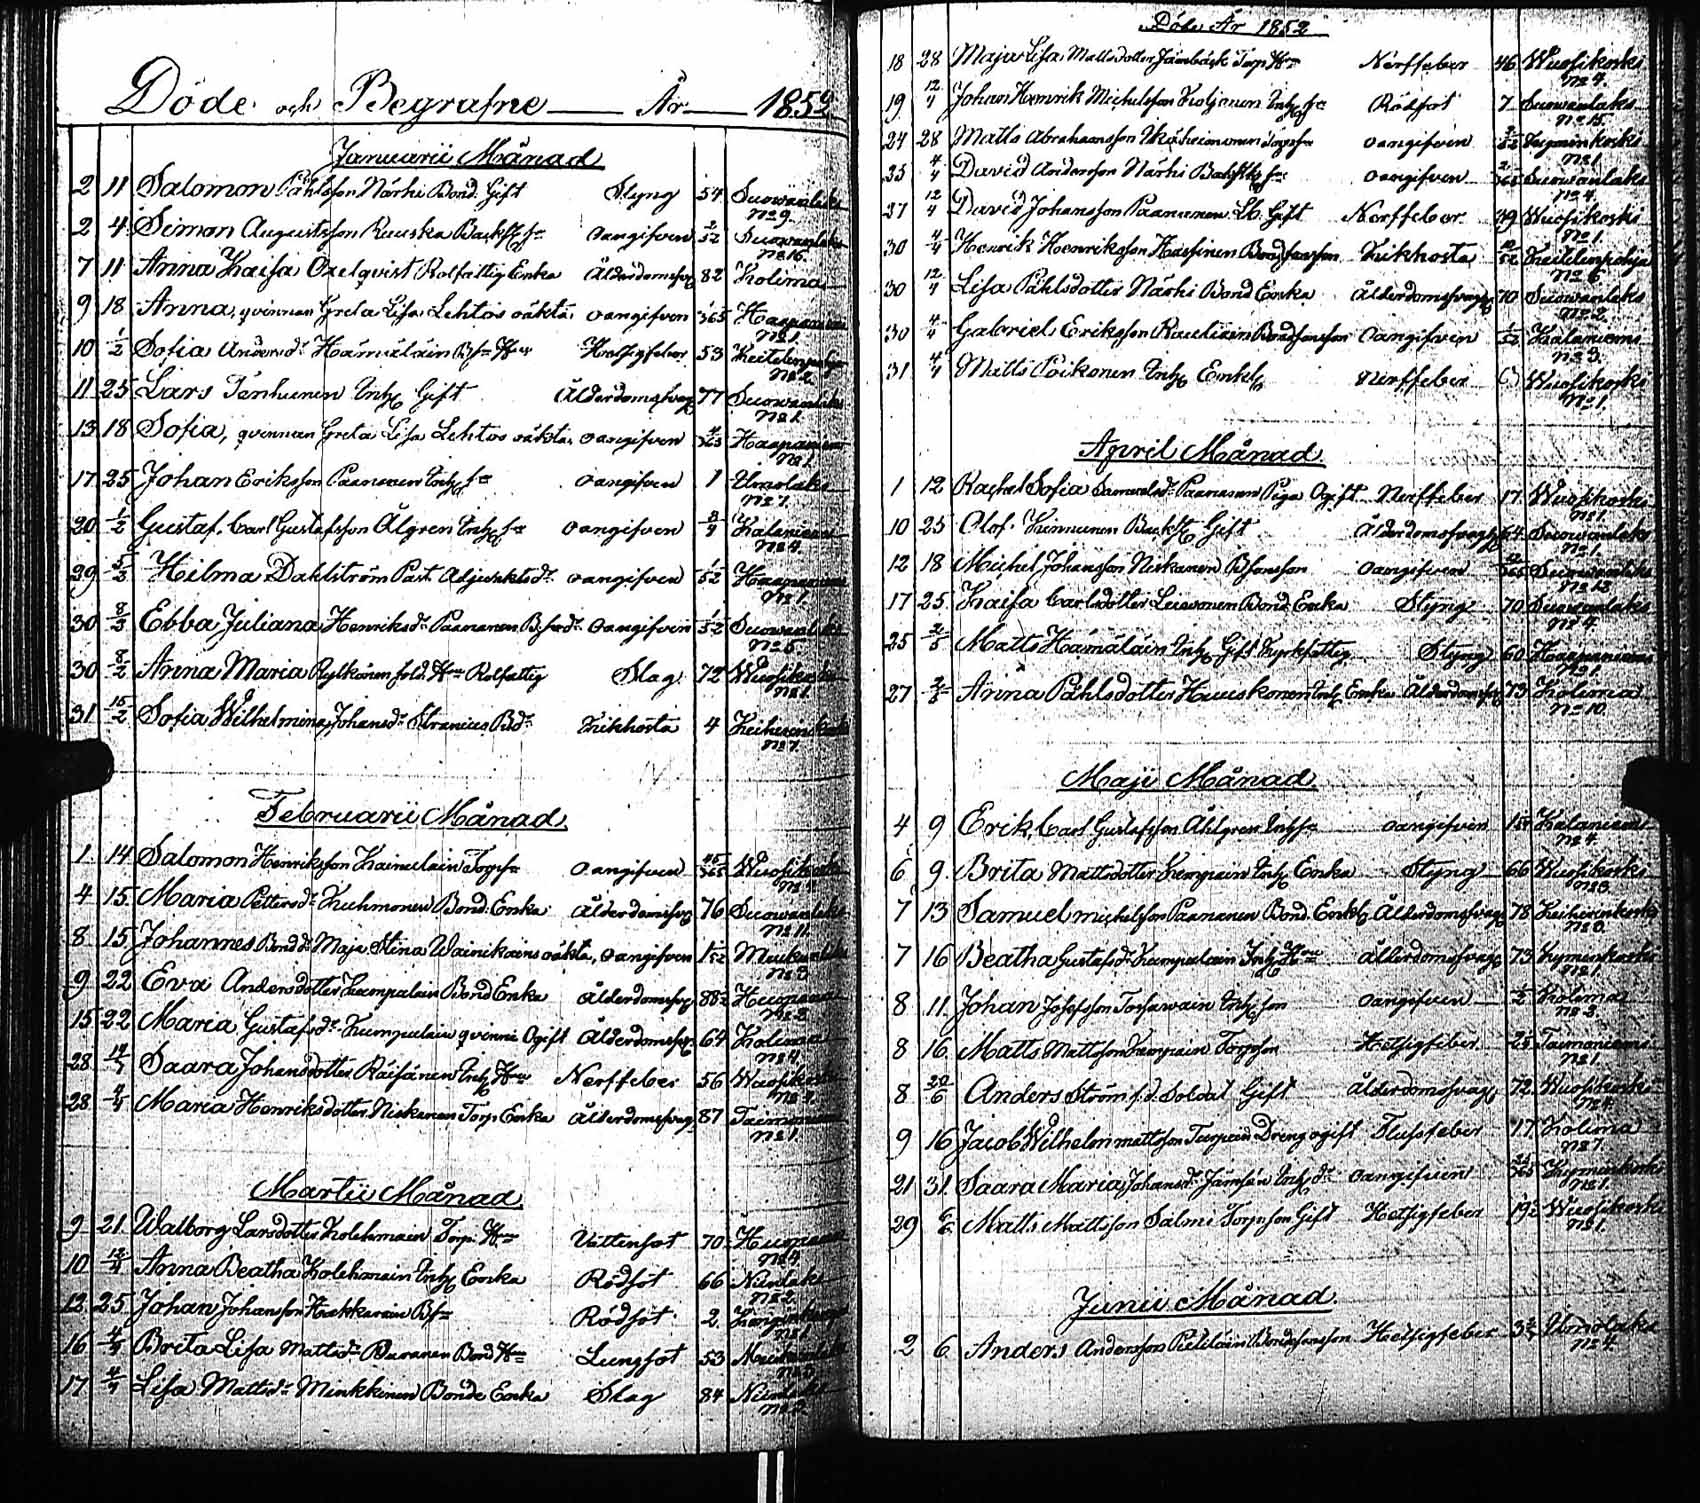 Döde och Begrafne År 1852
Januarii Månad
2 11 Salomon Påhlsson Närhi Bond. Gift Styng 54 Suowanlaks
No 9.
2 4 Simon Augustsson Ruuska Backst. Sn oangifven 2/52 Suowanlaks
No 16.
7 11 Anna Kaisa Oxelqvist Rotfattig Enka Ålderdomsvag 82 Kolima
9 18 Anna, qvinnan Greta Lisa Lehtos oäkta, oangifven 1/365 Haapaniemi
No 1.
10 1/2 Sofia Andersdr Hämäläin Hru Hetsigfeber 53 Keitelenpohja
No 2.
11 25 Lars Tenhunen Inh. Gift Ålderdomsvag 77 Suowanlaks
No 1.
13 18 Sofia, qvinnan Greta Lisa Lehtos oäkta, oangifven 4/365 Haapaniemi
No 1.
17 25 Johan Eriksson Paananen Inh. Sn oangifven 1 Umolaks
No 7.
20 1/2 Gustaf, Carl Gustafsson Ålgren Inh. Sn oangifven Kalaniemi
No 4.
29 5/2 Hilma Dahlström Past. Adjunktsdr oangifven 1/52 Haapaniemi
No 1.
30 8/2 Ebba Juliana Henriksdr Paananen oangifven 1/52 Suowanlaks
No 5.
30 8/2 Anna Maria Rytkönen Hru Rotfattig Slag 72 Wuosikoski
No 1.
31 15/2 Sofia Wilhelmina Johansdr Stranius Bdr Kikhosta 4 Keiherinkoski
No 7.
Februarii Månad
1 14 Salomon Henriksson Kainulain Torp. Sn oangifven Wuosikoski
4 15 Maria Pettersdr Kuhmonen Bond. Enka Ålderdomsvag 76 Suowanlaks
No 11.
8 15 Johannes Bonddr Maja Stina Wainikains oäkta, oangifven Muikunlaks
No 3.
9 22 Eva Andersdotter Kumpulain Bond Enka Ålderdomsvag 88
15 22 Maria Gustafsdr Kumpulain qvinna Ogift Ålderdomsvag 64 Kolima
No 4.
28 Saara Johansdotter Räisänen Inh. Hru Nerffeber 56 Wuosikoski
28 4/4 Maria Henriksdotter Niskanen Torp. Enka Ålderdomsvag 87 Taimoniemi
No 1.
Martii Månad
9 21 Walborg Larsdotter Kolehmain Torp. Hru Vattensot 70
No 4.
10 12/4 Anna Beatha Kolehmain Inh. Enka Rödsot 66 Ninlaks
No 2.
12 25 Johan Johansson Hakkarain Rödsot 2
No 1.
16 4/4 Brita Lisa Mattsdr Bond Hru Lungsot 53
17 4/4 Lisa Mattsdr Minkkinen Bonde Enka Slag 84
No 2.
Döde År 1852
18 28 Maja Lisa Mattsdotter Jernbäck Torp. Hru Nerffeber 46 Wuosikoski
No 4.
19 12/4 Johan Henrik Michelsson Koljonen Inh. Sn Rödsot 7 Suowanlaks
No 15.
24 28 Matts Abrahamsson Torp. Sn oangifven Kyminkoski
No 1
25 4/4 David Andersson Närhi Backst. Sn oangifven 2/365 Suowanlaks
No 4.
27 12/4 David Johansson Paananen Gift Nerffeber 39 Wuosikoski
No 1.
30 4/4 Henrik Henriksson Hassinen Bondsonsson Kikhosta 10/52 Keitelenpohja
No 6.
30 12/4 Lisa Påhlsdotter Närhi Bond Enka Ålderdomsvag 70 Suowanlaks
No 2.
30 4/4 Gabriel Eriksson Rautiain Bondsonsson oangifven Kalaniemi
No 3.
31 4/4 Matts Poikonen Inh. Enkl. Nerffeber Wuosikoski
No 1.
April Månad
1 12 Rachel Sofia Samuelsdr Paananen Piga Ogift Nerffeber 17 Wuosikoski
No 1.
10 25 Olof Kinnunen Backst. Gift Ålderdomsvag 64 Suowanlaks
No 1.
12 18 Michel Johansson Niskanen oangifven Suowanlaks
No 12.
17 25 Kaisa Carlsdotter Leivonen Bond Enka Styng 70 Suowanlaks
No 4.
25 2/5 Matts Hämäläin Inh. Gift Kyrkfattig Styng 60 Haapaniemi
No 1.
27 2/5 Anna Påhlsdotter Hauskonen Inh. Enka Ålderdomsvag 73 Kolima
No 10.
Maji Månad
4 9 Erik, Carl Gustafsson Ahlgren Inh. Sn oangifven Kalaniemi
No 4.
6 9 Brita Mattsdotter Kempain Inh. Enka Styng 66 Wuosikoski
No 3.
7 13 Samuel Michelsson Paananen Bond. Enkl. Ålderdomsvag 78 Keiherinkoski
No 3.
7 16 Beatha Gustafsdr Kumpulain Inh. Hru Ålderdomsvag 73 Kyminkoski
No 1.
8 11 Johan Josefsson Torfwain Inh. Son oangifven Kolima
No 3.
8 16 Matts Mattsson Kempain Torpson Hetsigfeber Taimoniemi
No 1.
8 20/6 Anders Ström f.d. Soldat Gift Ålderdomsvag 72 Wuosikoski
No 4.
9 16 Jacob Wilhelm Mattsson Turpein Dreng ogift Flussfeber 17 Kolima
No 7.
21 31 Saara Maria Johansdr Jämsén Inh. dr oangifven Kyminkoski
No 1.
29 6/6 Matts Mattsson Salmi Torpson Gift Hetsigfeber Wuosikoski
No 1.
Junii Månad.
2 6 Anders Andersson Pietiläin Bondsonsson Hetsigfeber Umolaks
No 4.